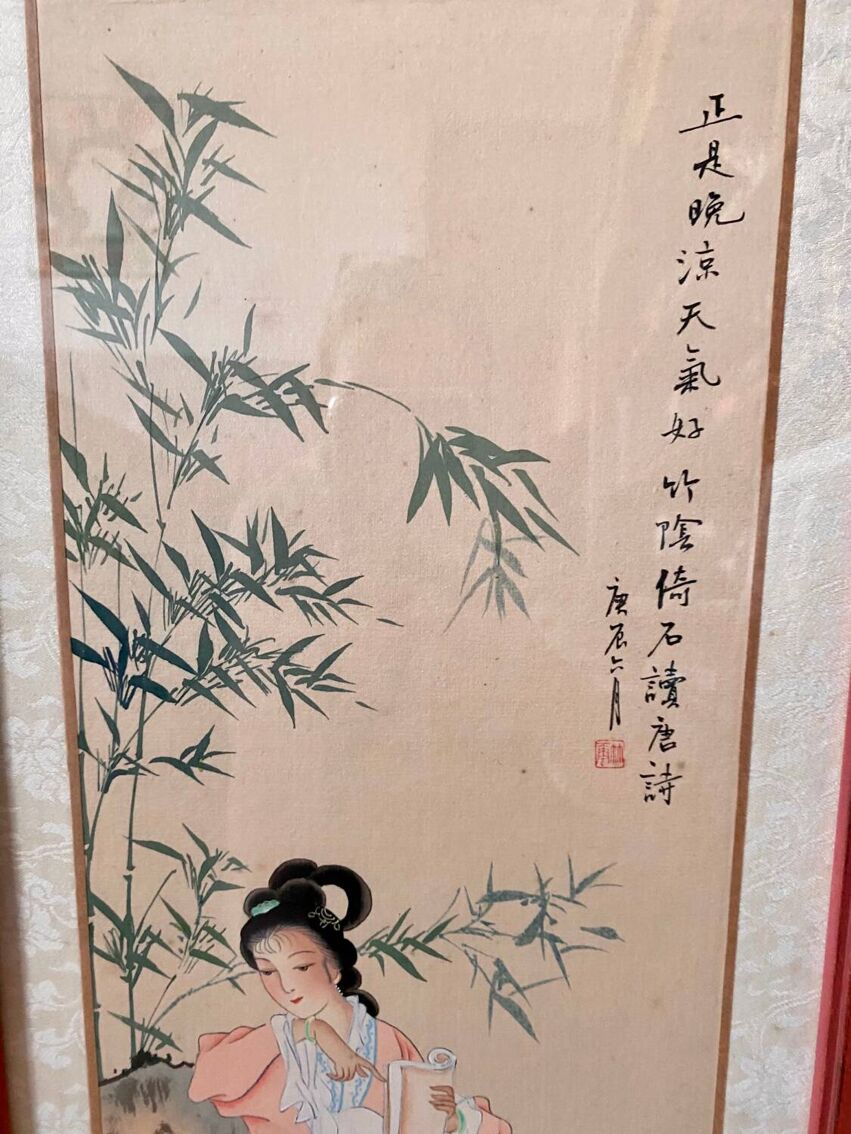 正是晚涼天氣好竹陰倚石讀唐詩
庚辰六月